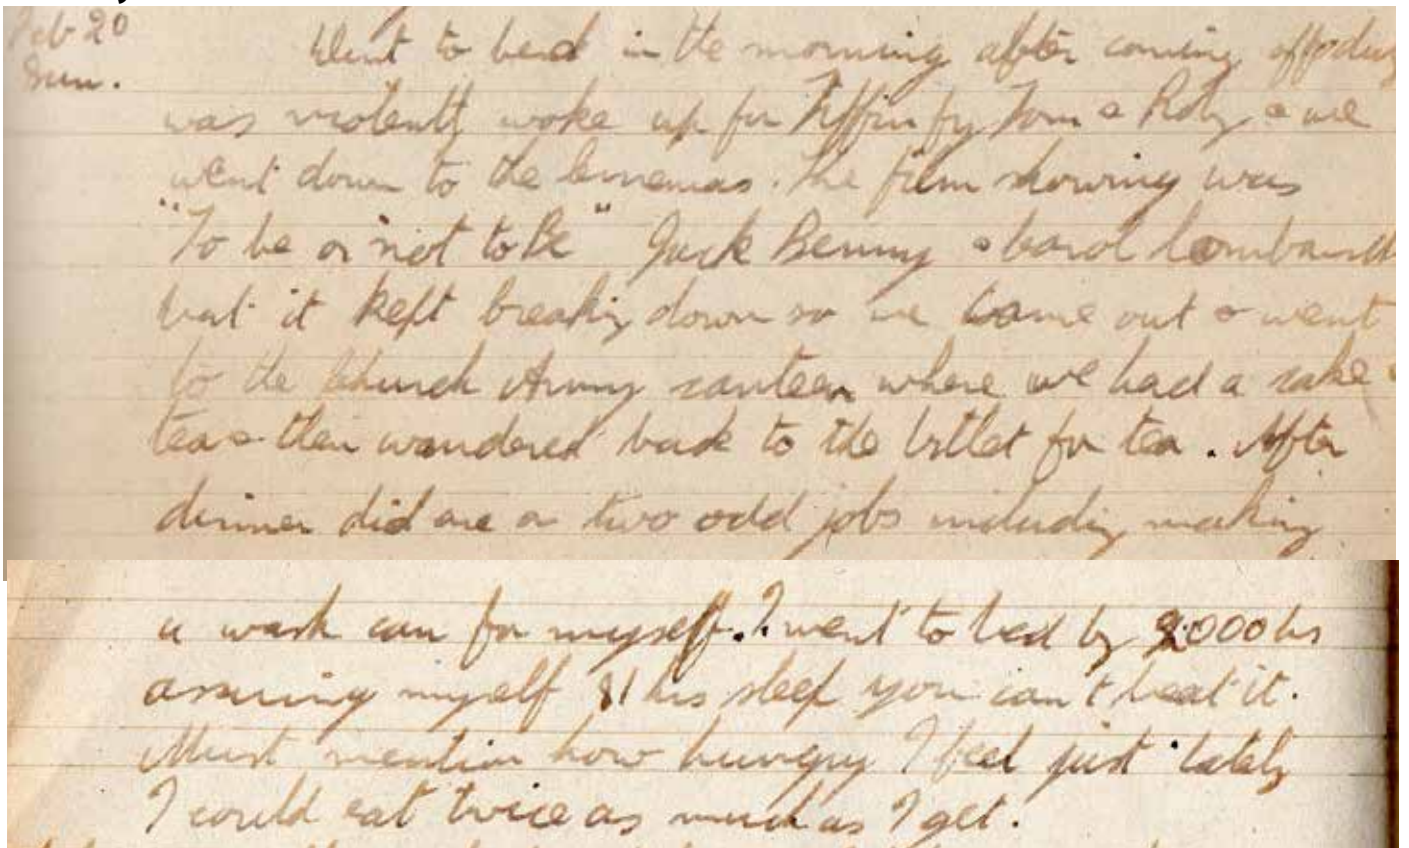 Feb 20
Sun.
Went to bed in the morning after coming off duty
was violently woke up for Tiffin by Tom & Roly & we
went down to the cinemas. The film showing was
"To be or not to Be" Jack Benny & Carol Lombard
but it kept breaking down so we came out & went
to the Church Army canteen where we had a cake &
tea & then wandered back to the billet for tea. After
dinner did one or two odd jobs including making
a wash can for myself. I went to bed by 2000 hrs
assuring myself 11 hrs sleep you can't beat it.
Must mention how hungry I feel just lately
I could eat twice as much as I get.